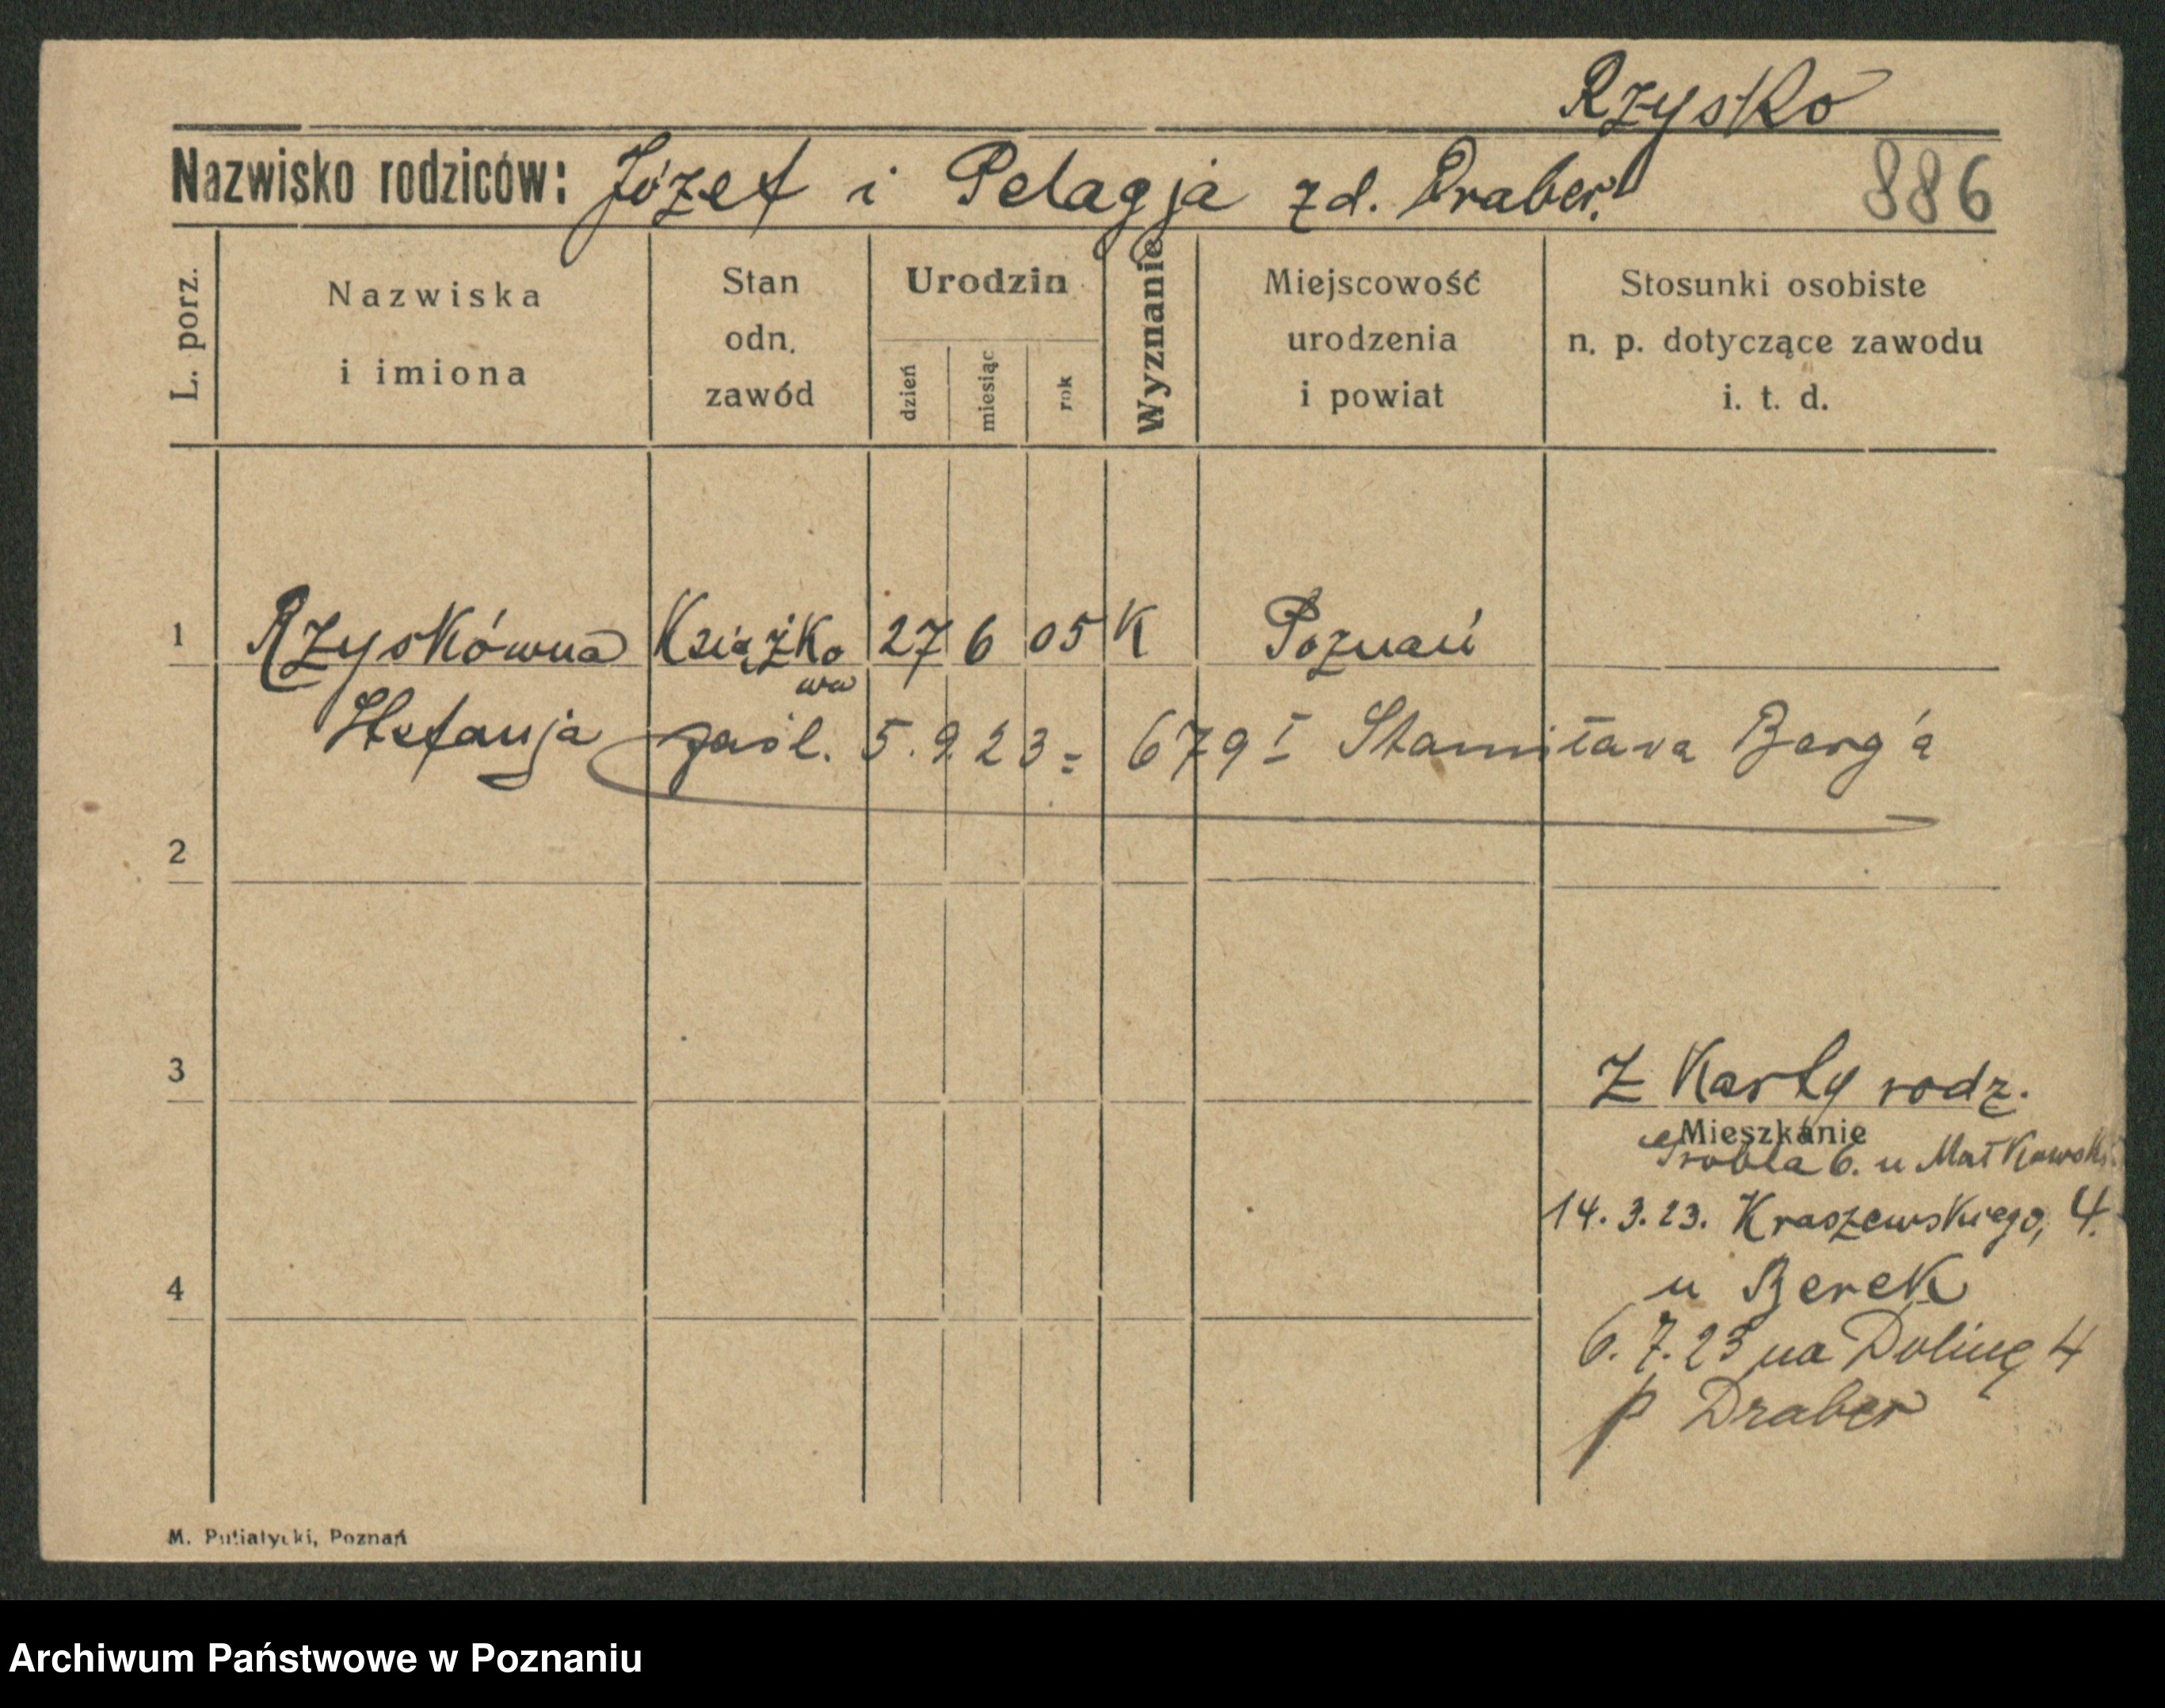 Rzysko
Nazwisko rodziców: Józef i Pelagja zd. Draber.
886
L. porz.
Nazwiska
i imiona
Stan
odn.
zawód
Urodzin
dzień
miesiąc
rok
Wyznanie
Miejscowość
urodzenia
i powiat
Stosunki osobiste
n. p. dotyczące zawodu
i. t. d.
1 Rzyskówna Książko 27 6 05 K Poznań
wa
Stefanja zaśl. 5.9.23 = 679 I Stanisława Berg'a
2
3
Z Karty rodz.
Mieszkanie
Grobla 6. u Matkowski
14.3.23. Kraszewskiego, 4.
4
u Berek
6.7.23 na Dolinę 4
p Draber
M. Putiatycki, Poznań
Archiwum Państwowe w Poznaniu